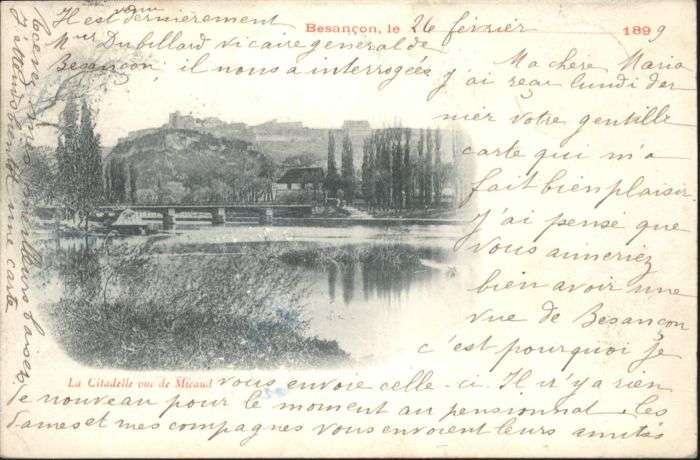 Besançon, le 26 février 1899
Ma chère Maria
J'ai reçu lundi der
nier votre gentille
carte qui m'a
fait bien plaisir.
J'ai pensé que
vous aimeriez
bien avoir une
vue de Besançon
c'est pourquoi je
vous envoie celle-ci. Il n'y a rien
de nouveau pour le moment au pensionnat. Les
dames et mes compagnes vous envoient leurs amitiés
La Citadelle vue de Micaud
Il est venu dernièrement
Mgr Dubillard vicaire general de
Besançon, il nous a interrogées
Recevez mes meilleurs baisers
J'attends bientôt une carte